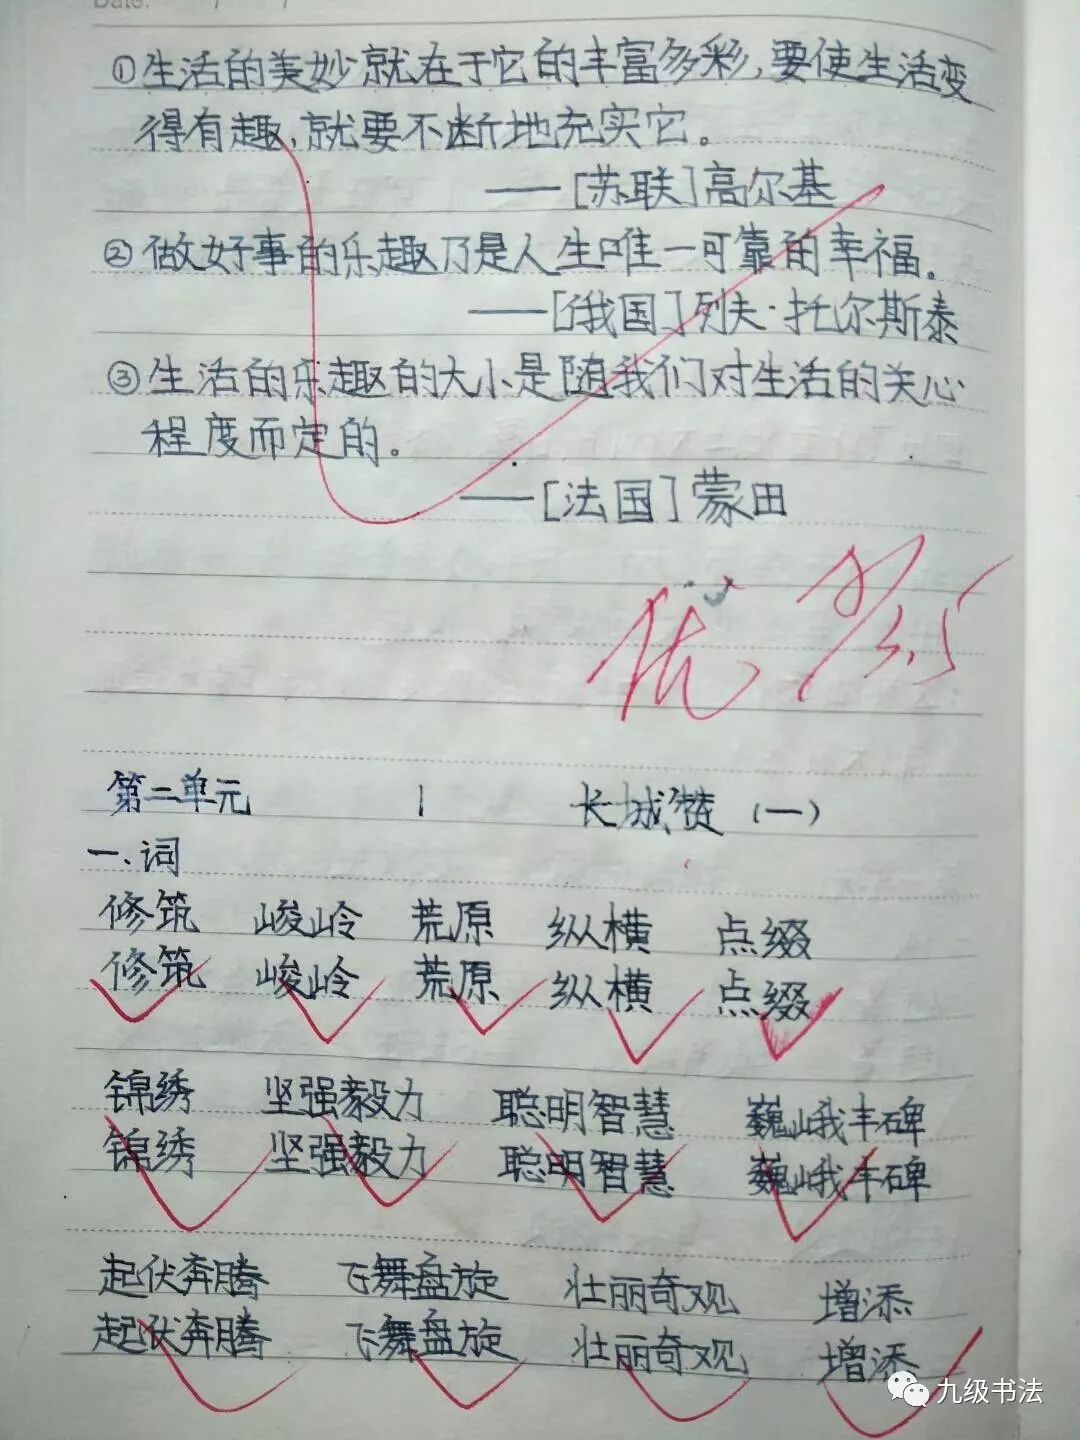 Date. / /
①生活的美妙就在于它的丰富多彩,要使生活变
得有趣,就要不断地充实它。
——[苏联]高尔基
②做好事的乐趣乃是人生唯一可靠的幸福。
——[俄国]列夫·托尔斯泰
③生活的乐趣的大小是随我们对生活的关心
程度而定的。
——[法国]蒙田
优
第二单元 1 长城赞(一)
一、词
修筑 峻岭 荒原 纵横 点缀
修筑 峻岭 荒原 纵横 点缀
锦绣 坚强毅力 聪明智慧 巍峨丰碑
锦绣 坚强毅力 聪明智慧 巍峨丰碑
起伏奔腾 飞舞盘旋 壮丽奇观 增添
起伏奔腾 飞舞盘旋 壮丽奇观 增添
九级书法